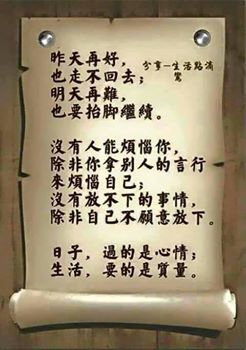 昨天再好，
也走不回去；
明天再難，
也要抬脚繼續。
分享—生活點滴
鶯
沒有人能煩惱你，
除非你拿别人的言行
來煩惱自己；
沒有放不下的事情，
除非自己不願意放下。
日子，過的是心情；
生活，要的是質量。